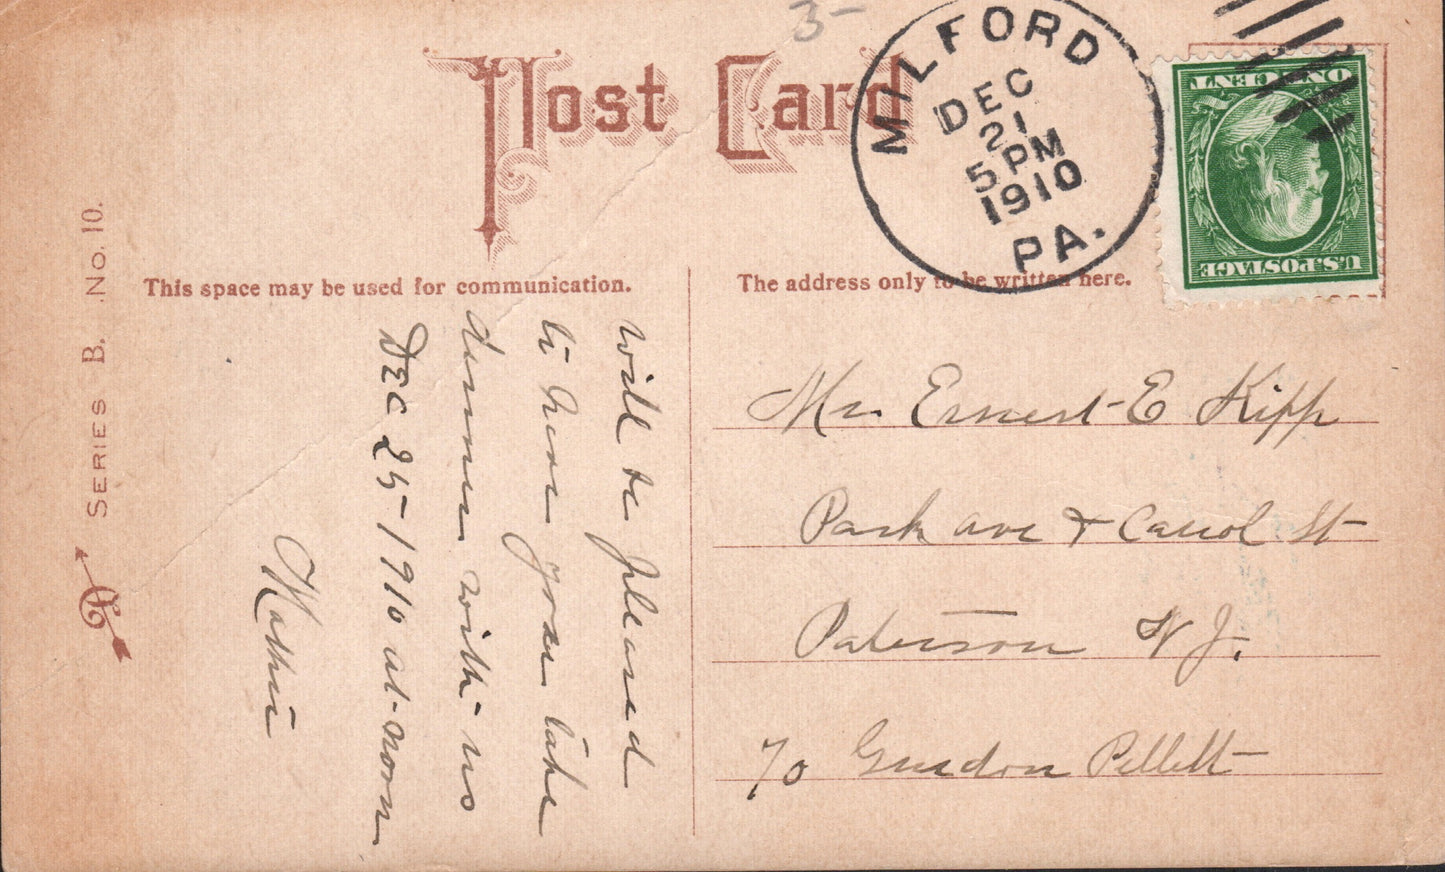 3-
Post Card
MILFORD
DEC
21
5 PM
1910
PA.
ONE CENT
U.S. POSTAGE
SERIES B. No. 10.
This space may be used for communication.
The address only to be written here.
will be pleased
to have you take
dinner with us
DEC 25-1910 at noon
Mr Ernest E Kipp
Park ave & Carrol St
Paterson N J.
Gurdon Pellett